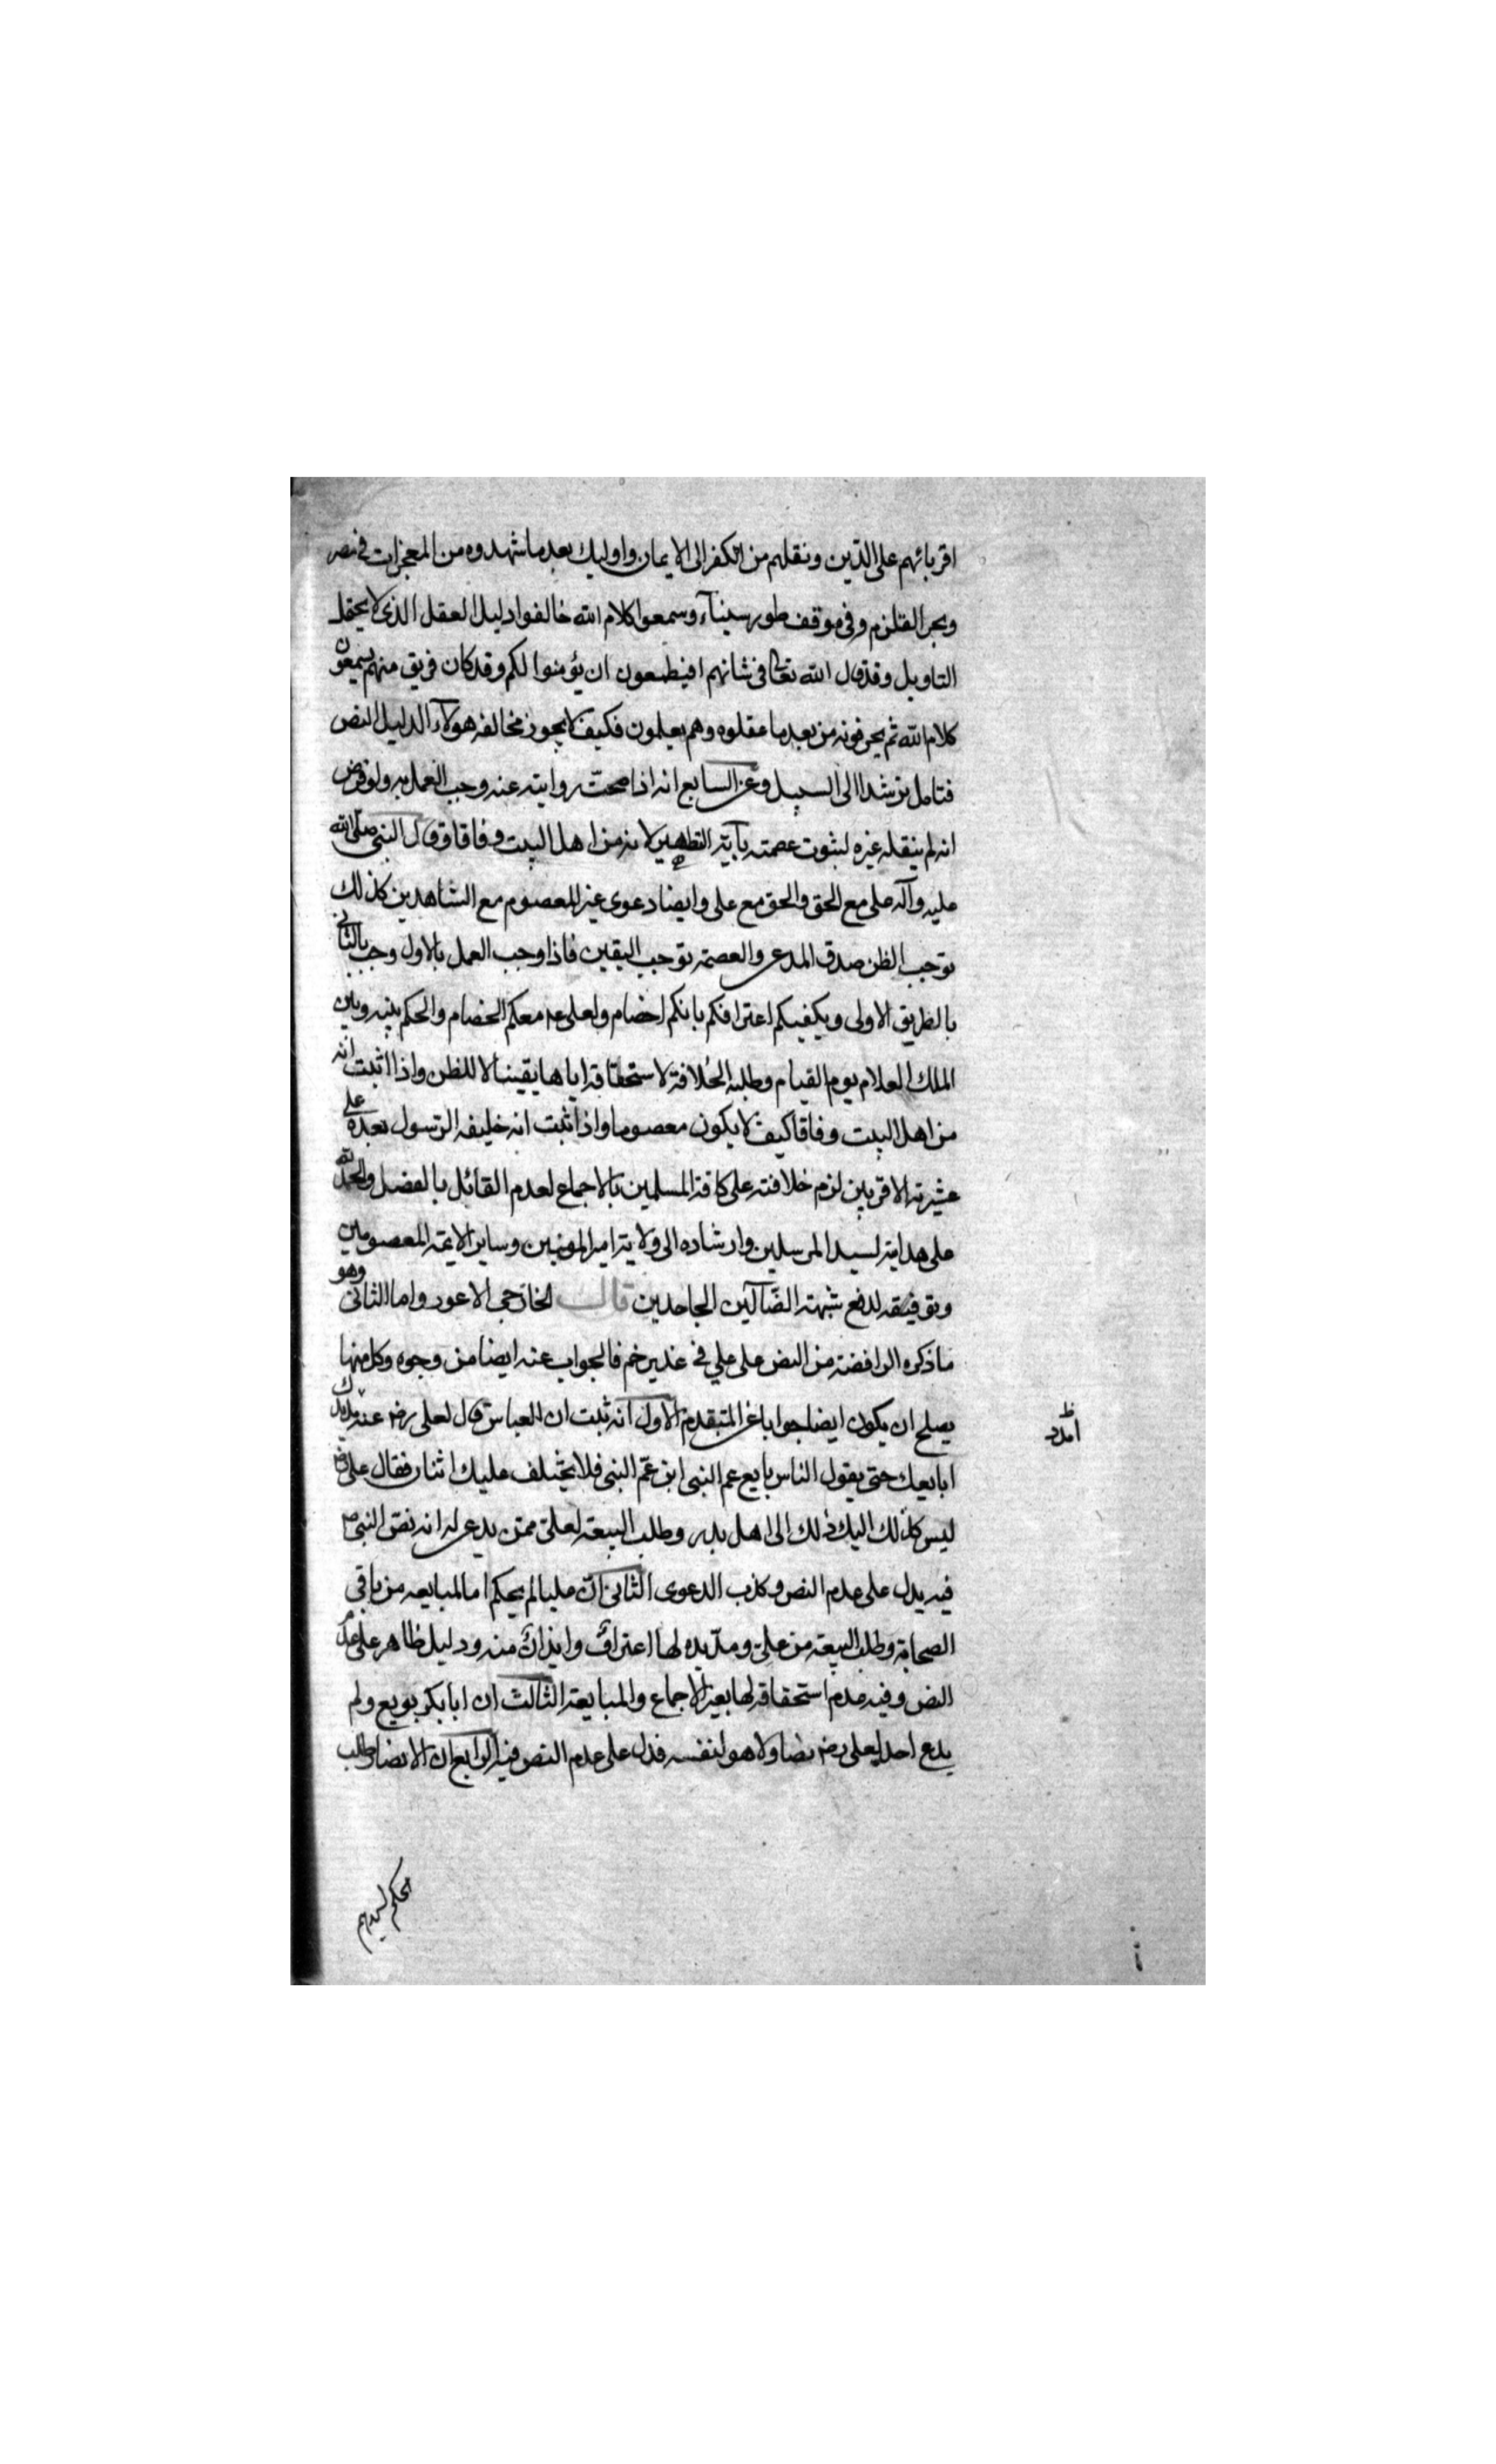 اقربائهم على الدين ونقلهم من الكفر الى الايمان واوليك بعد ما شهدوه من المعجزات في مصر
وبحر القلزم وفى موقف طور سيناء وسمعوا كلام الله خالفوا دليل العقل الذى لا يحتمل
التاويل وقد قال الله تعالى فى شانهم افتطمعون ان يؤمنوا لكم وقد كان فريق منهم يسمعون
كلام الله ثم يحرفونه من بعد ما عقلوه وهم يعلمون فكيف لا يجوز مخالفة هولاء الدليل النص
فتامل ترشد الى السبيل وعن السابع انه اذا صحت روايته عنه وجب العمل به ولو فرض
انه لم ينقله غيره لثبوت عصمته بآية التطهير لانه من اهل البيت وفاقا وقال النبى صلى الله
عليه وآله على مع الحق والحق مع على وايضا دعوى غير المعصوم مع الشاهدين كذلك
توجب الظن صدق المدعى والعصمة توجب اليقين فاذا وجب العمل بالاول وجب بالثانى
بالطريق الاولى ويكفيكم اعترافكم بانكم اخصام ولعلى ع معكم الخصام والحكم بينه وبين
الملك العلام يوم القيام وطلبه الخلافة لاستحقاقه اياها يقينا لا للظن واذا اثبت انه
من اهل البيت وفاقا كيف لا يكون معصوما واذا ثبت انه خليفه الرسول بعده على
عشيرته الاقربين لزم خلافته على كافة المسلمين بالاجماع لعدم القائل بالفصل والحمد لله
على هداية لسيد المرسلين وارشاده الى ولاية امير المومنين وساير الايمة المعصومين
وتوفيقه لدفع شبهة الضالين الجاحدين قال الخارجى الاعور واما الثانى وهو
ما ذكره الرافضة من النص على علي في غدير خم فالجواب عنه ايضا من وجوه وكل منها
يصلح ان يكون ايضا جوابا عن المتقدم الاول انه ثبت ان العباس قال لعلى رضه عنه مد يدك
ابايعك حتى يقول الناس بايع عم النبى ابن عم النبى فلا يختلف عليك اثنان فقال على رضه
ليس كذلك اليك ذلك الى اهل بدر وطلب البيعة لعلى ممن يدعى له انه نص النبى ص
فيه يدل على عدم النص وكذب الدعوى الثانى ان عليا لم يحكم اما لمبايعه من باقى
الصحابة وطلب البيعة من على ومد يده لها اعتراف وايذان منه ودليل ظاهر على عدم
النص وفيه عدم استحقاقه لها بغير الاجماع والمبايعة الثالث ان ابا بكر بويع ولم
يدع احد لعلى رضه نصا ولا هو لنفسه فدل على عدم النص فيه الرابع ان الانصار طلب
امدد ظ